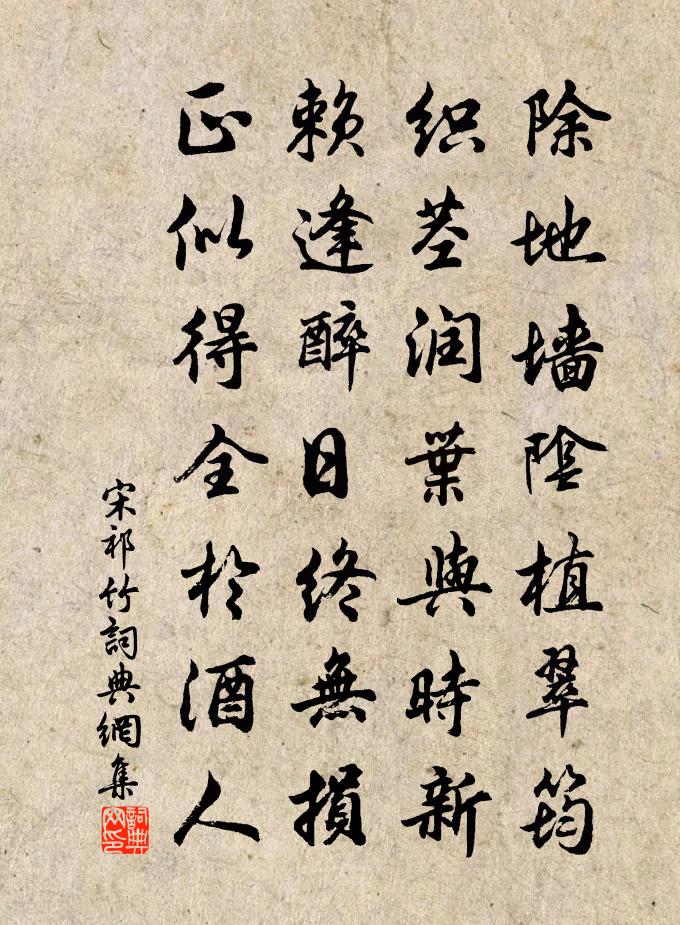 除地墙陰植翠筠
织茎润葉與時新
赖逢醉日终無損
正似得全於酒人
宋祁竹詞典網集
詞典网印